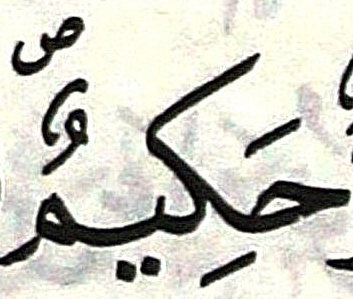 حَكِيمٌ ۖ ص